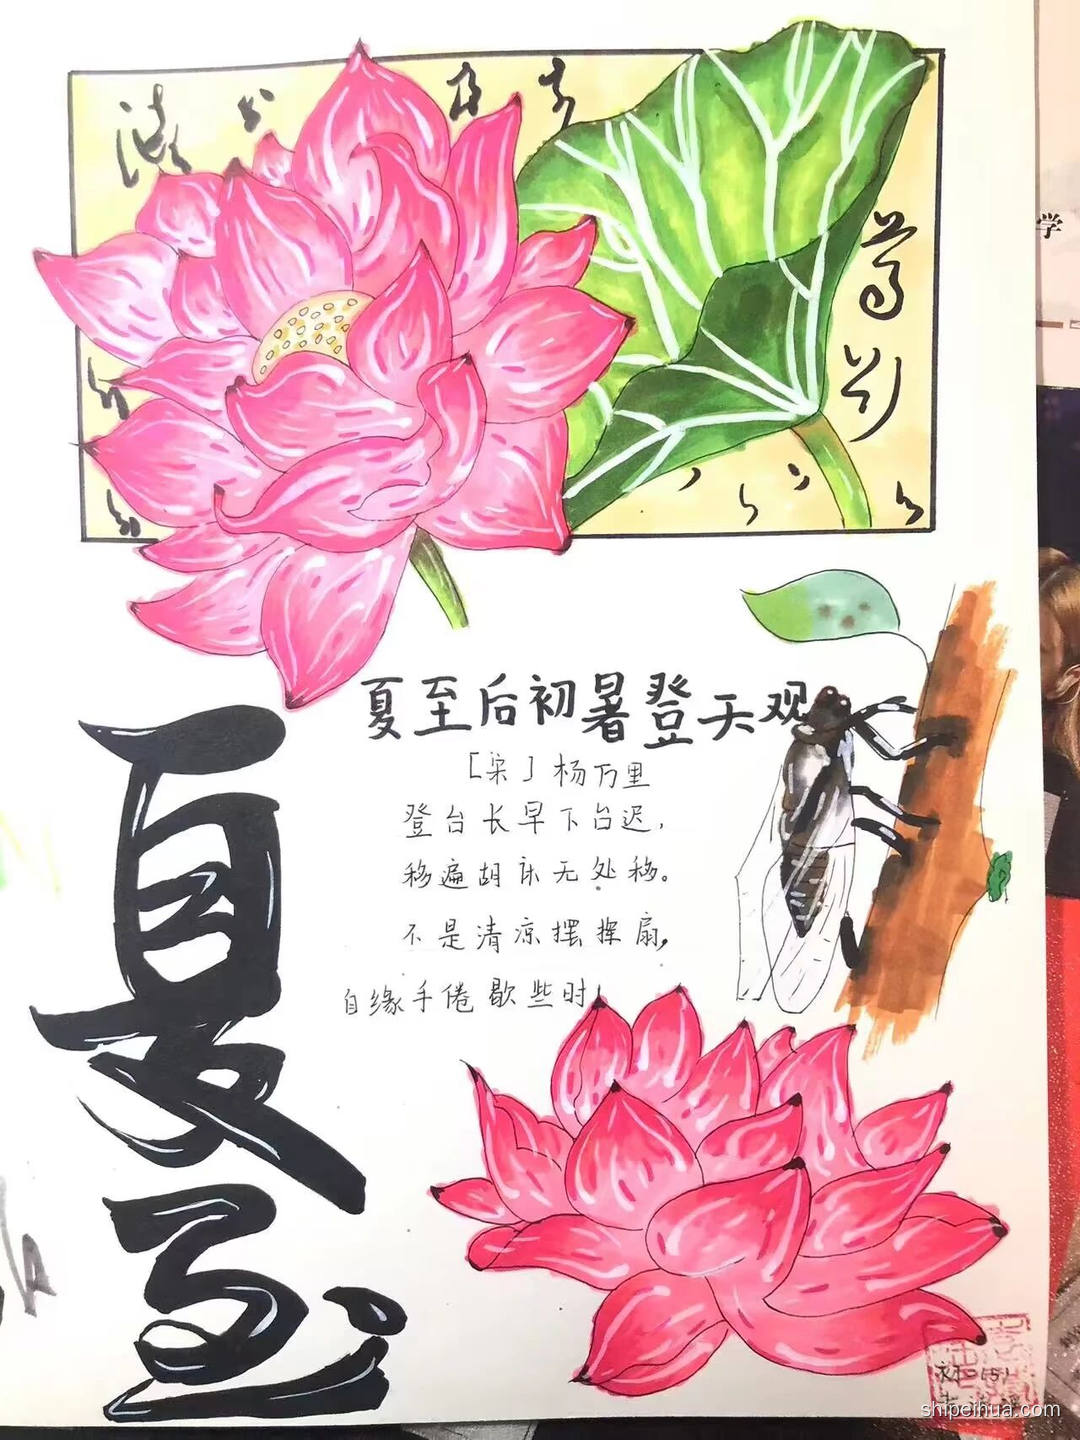 夏至
夏至后初暑登天观
[宋]杨万里
登台长早下台迟,
移遍胡床无处移。
不是清凉摆挥扇,
自缘手倦歇些时!
学
shipeihua.com